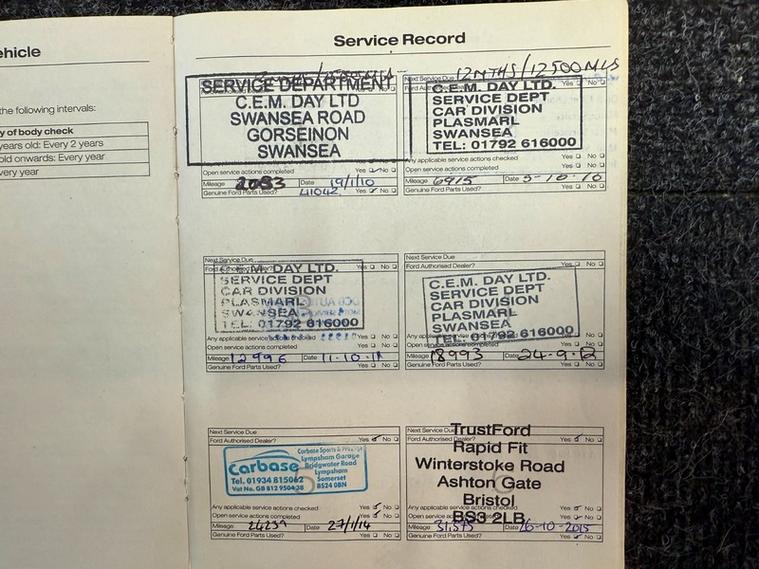 ehicle
the following intervals:
y of body check
years old: Every 2 years
old onwards: Every year
very year
Service Record
SERVICE DEPARTMENT
C.E.M. DAY LTD
SWANSEA ROAD
GORSEINON
SWANSEA
Open service actions completed Yes No
Mileage 2083 Date 19/1/10
Genuine Ford Parts Used? 41042 Yes No
Next Service Due 12 MTHS/12500 MLS
C.E.M. DAY LTD.
SERVICE DEPT
CAR DIVISION
PLASMARL
SWANSEA
TEL: 01792 616000
Any applicable service actions checked Yes No
Open service actions completed Yes No
Mileage 6915 Date 5-10-10
Genuine Ford Parts Used? Yes No
Next Service Due
Ford Authorised Dealer? Yes No
C.E.M. DAY LTD.
SERVICE DEPT
CAR DIVISION
PLASMARL
SWANSEA
TEL: 01792 616000
Any applicable service actions checked Yes No
Open service actions completed Yes No
Mileage 12996 Date 11-10-11
Genuine Ford Parts Used? Yes No
Next Service Due
Ford Authorised Dealer? Yes No
C.E.M. DAY LTD.
SERVICE DEPT
CAR DIVISION
PLASMARL
SWANSEA
TEL: 01792 616000
Open service actions completed Yes No
Mileage 18993 Date 24-9-12
Genuine Ford Parts Used? Yes No
Next Service Due
Ford Authorised Dealer? Yes No
Carbase
Tel. 01934 815062
Vat No. GB 812 9504 38
Carbase Sports &
Lympsham Garage
Bridgwater Road
Lympsham
Somerset
BS24 0BN
Any applicable service actions checked Yes No
Open service actions completed Yes No
Mileage 24239 Date 27/1/14
Genuine Ford Parts Used? Yes No
Next Service Due
Ford Authorised Dealer? Yes No
TrustFord
Rapid Fit
Winterstoke Road
Ashton Gate
Bristol
BS3 2LB
Any applicable service actions checked Yes No
Open service actions completed Yes No
Mileage 31,575 Date 26-10-2015
Genuine Ford Parts Used? Yes No